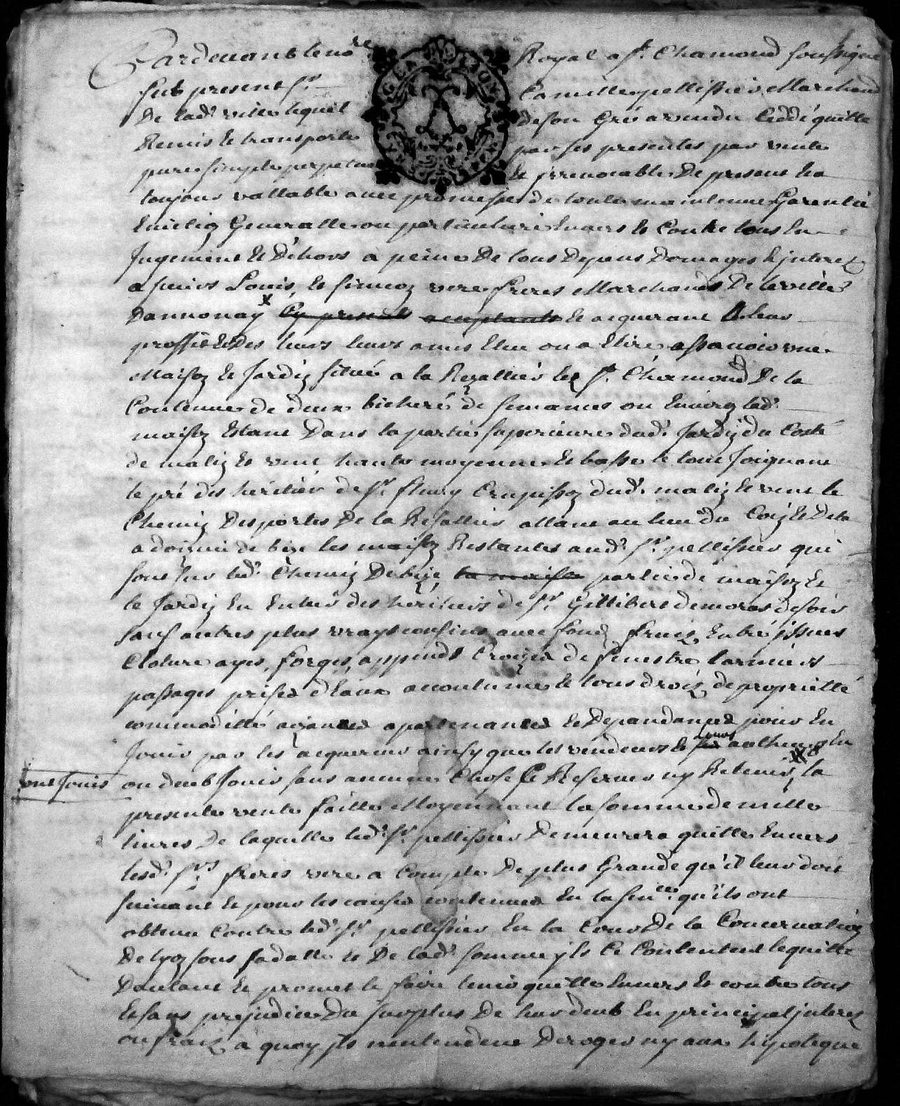 Pardevant le no.re Royal a St. Chamond soussigné
fut present Sr. Camille pellissier Marchand
de lad. ville lequel de son Gré a vendu ceddé quitte
Remis et transporte par ses presentes par vente
pure simple perpetuelle et irrevocable de present et a
toujours vallable avec promesse de toute maintenue Garentie
Generalle ou particuliere Envers et Contre tous En
Jugement et dehors a peine de tous depens Domages Interez
a sieurs Louis et vere freres Marchands de la ville
Dannonay x cy presents acceptants et acquerant a leur
proffit et des leurs leurs amis Elus ou a Elire assavoir une
Maison et Jardin situés a la St. Chamond de la
Contenue de deux bicheré de semances ou Environ lad.
maison Estant Dans la partie superieure dud. Jardin du Costé
de matin et vent haute moyenne et basse le tout Joignant
le pré des heritiers de Sr. fleury Crapisson dud. matin et vent le
Chemin des portes de la allant au lieu du et de la
a de bize les maison Restantes aud. Sr. pellissier qui
sont sur led. Chemin De bize la maison partie de maison et
le Jardin En des heritiers de Sr. Gillibert demoras de soir
sauf autres plus vrays confins avec fond, fruis, Entré issues
Cloture ayes, forges, appends Croisées de fenestre larmiers
passages prises d'Eaux accoutumés et tous drois de propriété
commodité aisances apartenances et Dependances pour En
Jouir par les acquereurs ainsy que les vendeurs et leurs autheurs En
ont Jouis
ou deub Jouir sans aucune Chose se Reserver ny Retenir, la
presente vente faitte Moyenant la somme de mille
livres de laquelle led. Sr. pellissier Demeurera quitte Envers
lesd. Srs. freres vere a Compte De plus Grande qu'il leur doit
suivant et pour les causes contenues En la sentence qu'ils ont
obtenu Contre led. Sr. pellissier En la Cour De la Conservation
De lyon sous sa datte et De lad. somme ils Ce Contentent le quitte
Dautant et promet le faire tenir quitte Envers et contre tous
et sans prejudice du surplus de leur deub En principal interez
ou frais a quoy ils n'entendent Deroger ny aux hipoteque